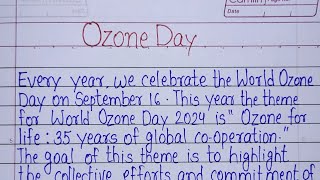 Camlin
Date
Ozone Day
Every year we celebrate the World Ozone
Day on September 16. This year the theme
for World Ozone Day 2024 is " Ozone for
life : 35 years of global co-operation."
The goal of this theme is to highlight
the collective efforts and commitment of